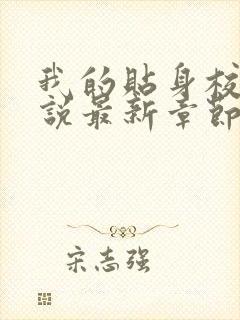 我的貼身校
說最新章節
宋志强